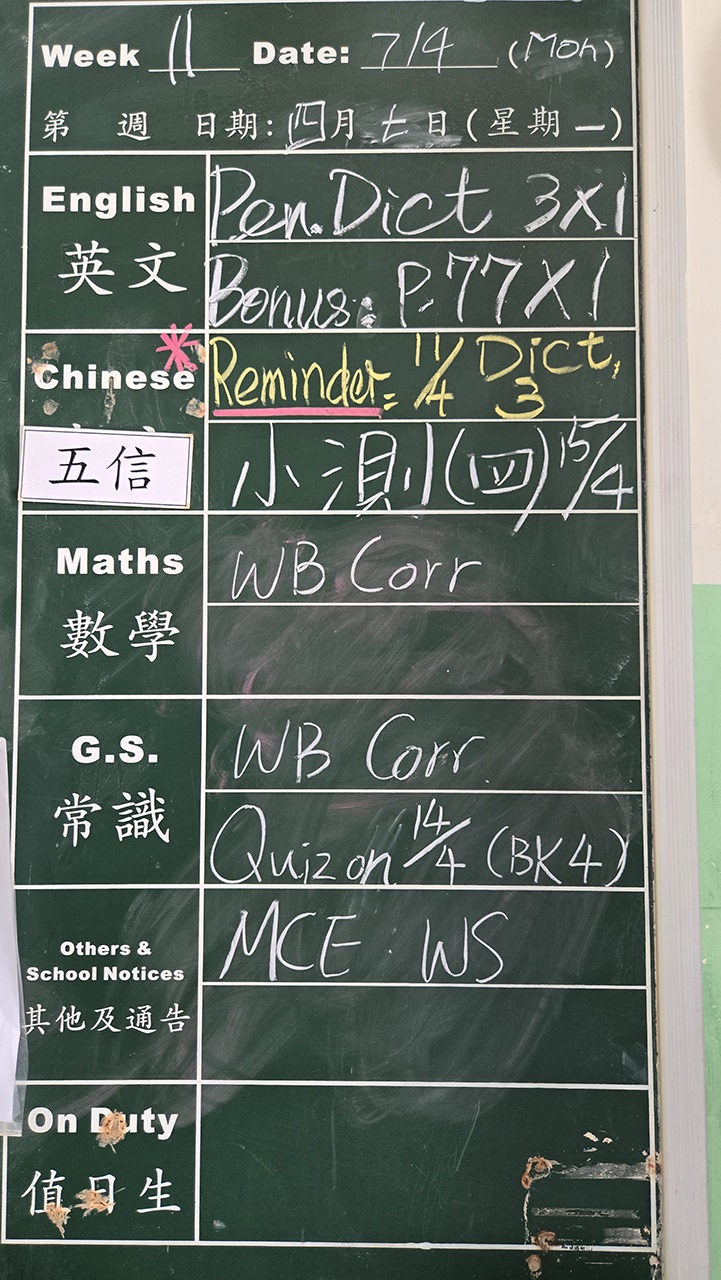 Week 11 Date: 7/4 (Mon)
第 週 日期: 四月七日(星期一)
English Pen. Dict 3X1
英文 Bonus: P.77X1
Chinese * Reminder: 11/4 Dict, 3
五信 小測(四) 15/4
Maths WB Corr
數學
G.S. WB Corr.
常識 Quiz on 14/4 (BK4)
Others & MCE. WS
School Notices
其他及通告
On Duty
值日生